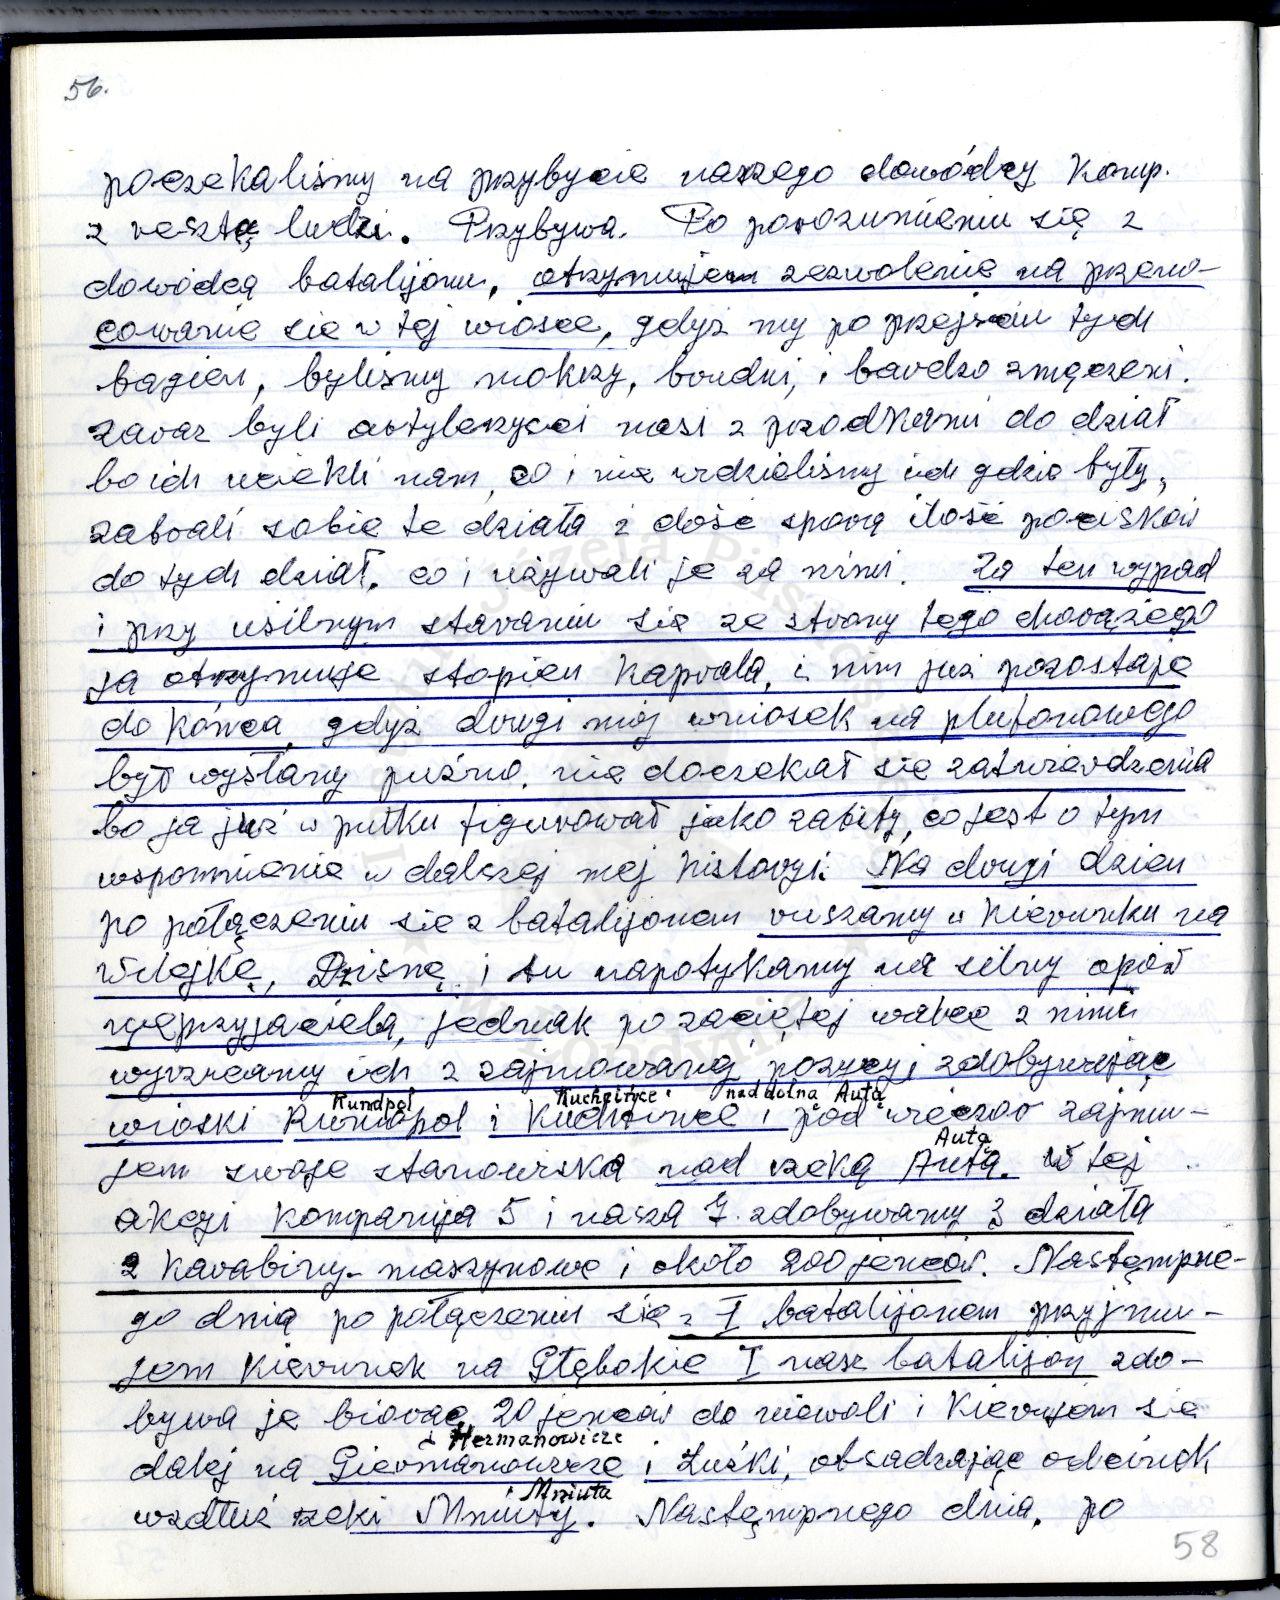 56.
poczekaliśmy na przybycie naszego dowódcy Komp.
z resztą ludzi. Przybywa. Po porozumieniu się z
dowódcą batalijonu, otrzymujem zezwolenie na przeno-
cowanie sie w tej wiosce, gdyż my po przejsciu tych
bagien, byliśmy mokrzy, brudni, i bardzo zmęczeni.
Zaraz byli artylerzysci nasi z przodkami do dział
bo ich uciekli nam, co i nie widzieliśmy ich gdzie były,
zabrali sobie te działa i dość sporą ilość pocisków
do tych dział, co i używali je za nimi. Za ten wypad
i przy usilnym staraniu sie ze strony tego chorążego
ja otrzymuje stopien Kaprala, i nim już pozostaje
do Końca, gdyż drugi mój wniosek na plutonowego
był wysłany puźno, nie doczekał sie zatwierdzenia
bo ja już w pułku figurował jako zabity, co jest o tym
wspomnienie w dalszej mej historyi. Na drugi dzien
po połączeniu się z batalijonem ruszamy w Kierunku na
Wilejkę, Dzisnę i tu napotykamy na silny opór
nieprzyjaciela, jednak po zaciętej walce z nimi
wyrzucamy ich z zajmowanej pozycyi zdobywając
Rundpol Kuchcińce nad dolna Autą
wioski Rundopol i Kuchcince i pod wieczór zajmu-
Autą
jem swoje stanowiska nad rzeką Autą. W tej
akcyi Kompanija 5 i nasza 7. zdobywamy 3 działa
2 Karabiny maszynowe i około 200 jenców. Następne-
go dnia po połączeniu się z I batalijonem przyjmu-
jem Kierunek na Głębokie I nasz batalijon zdo-
bywa je biorąc 20 jenców do niewoli i Kierujem się
i Hermanowicze
dalej na Giermanowicze i Łuźki, obsadzając odcinek
i Mniuta
wzdłuż rzeki Mniuty. Nastęmpnego dnia, po
58